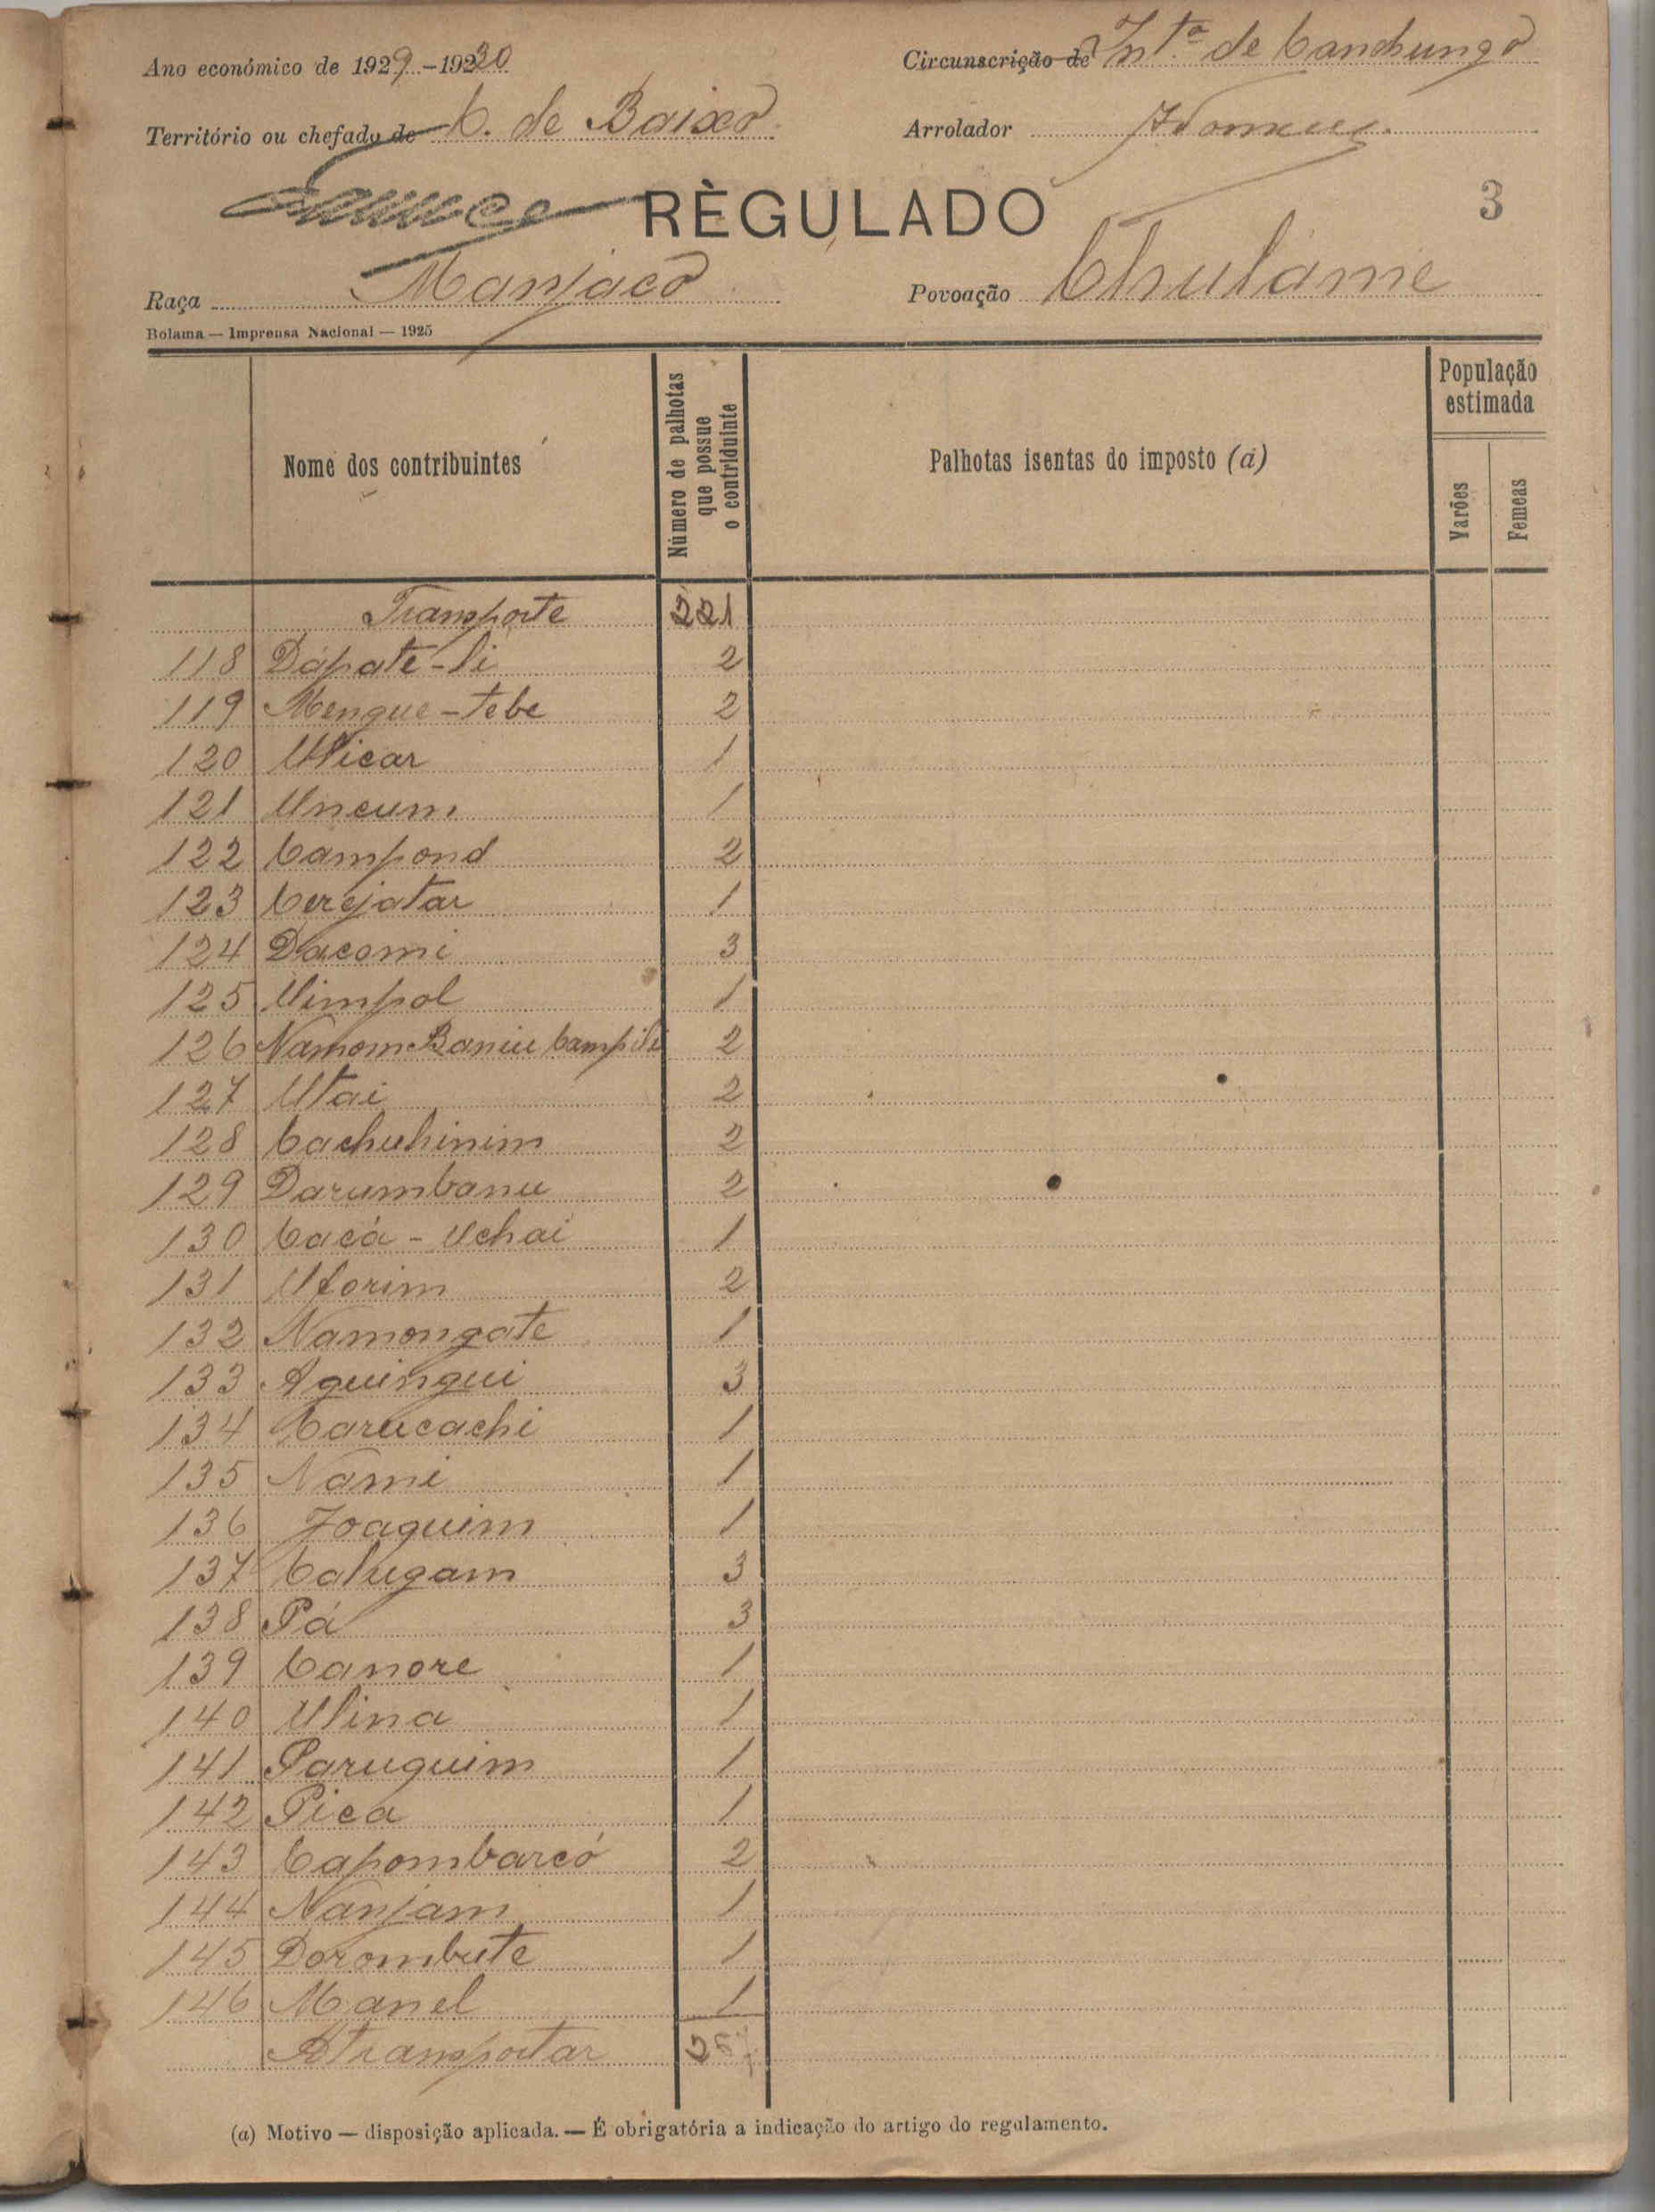 Ano económico de 1929-1930
Circunscrição de Int.ª de Canchungo
Território ou chefado de C. de Baixo
Arrolador
RÈGULADO
3
Raça Manjaco
Povoação Chulame
Bolama — Imprensa Nacional — 1925
Nome dos contribuintes
Número de palhotas que possue o contriduinte
Palhotas isentas do imposto (a)
População estimada
Varões
Femeas
Transporte 221
118 Dápate-li 2
119 Mengue-tebe 2
120 Ulicar 1
121 Uncum 1
122 Campond 2
123 Cerejatar 1
124 Dacomi 3
125 Uimpol 1
126 Namom Baniu Campili 2
127 Utai 2
128 Cachuhinim 2
129 Darumbanu 2
130 Cacá-Uchai 1
131 Utorim 2
132 Namongate 1
133 Aguingui 3
134 Carucachi 1
135 Nami 1
136 Joaquim 1
137 Calugam 3
138 Pá 3
139 Canore 1
140 Ulina 1
141 Paruguim 1
142 Pica 1
143 Capombarcó 2
144 Nanjam 1
145 Dorombute 1
146 Manel 1
A transportar
(a) Motivo — disposição aplicada. — É obrigatória a indicação do artigo do regulamento.